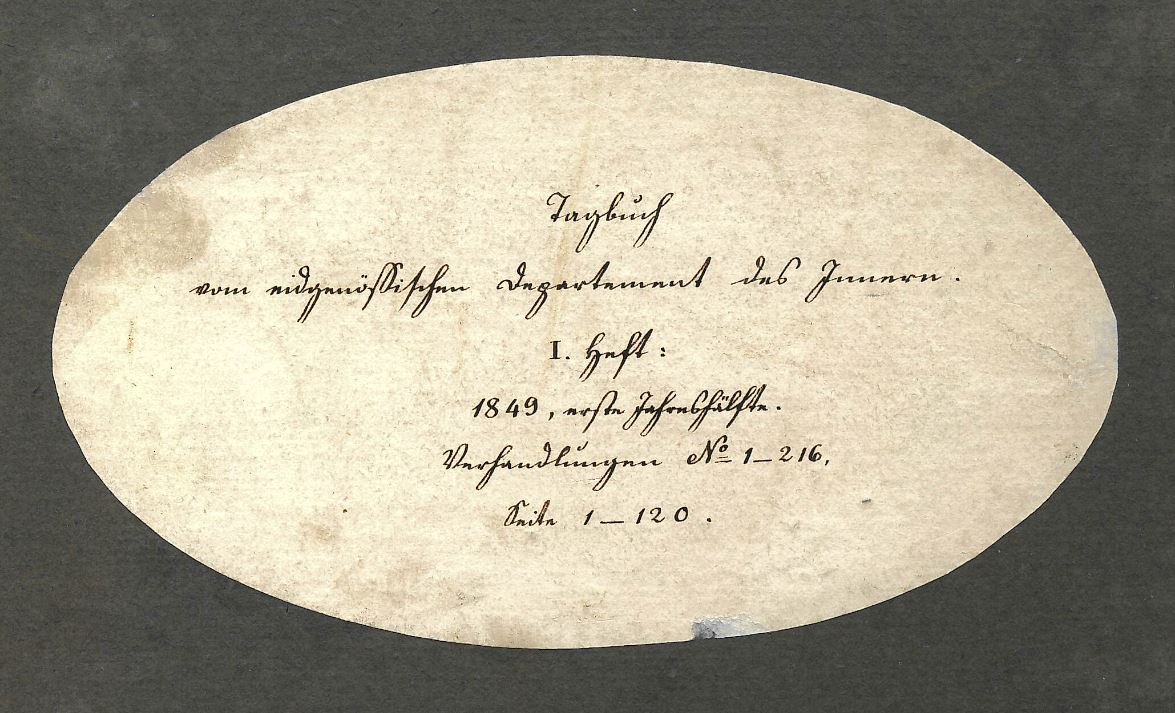 Tagbuch
vom eidgenössischen Departement des Innern.
I. Heft:
1849, erste Jahreshälfte.
Verhandlungen No 1-216,
Seite 1-120.